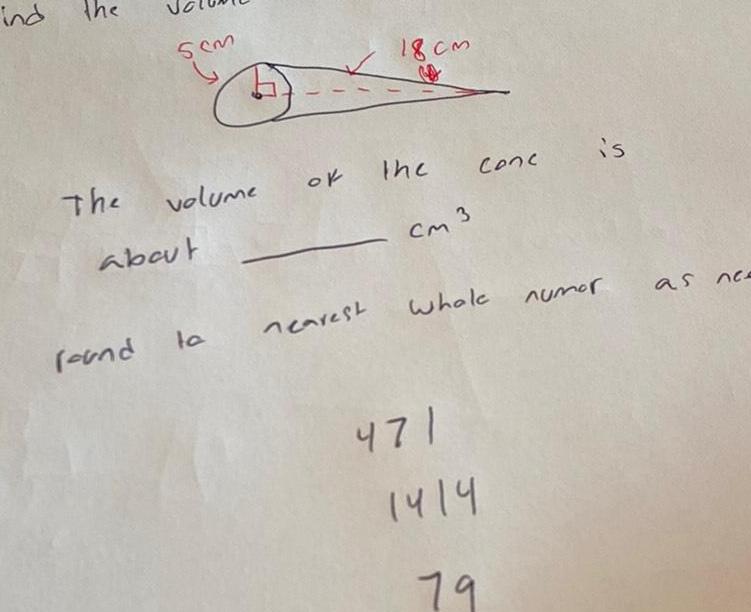 ind the volume
5cm 18 cm
The volume of the cone is
about ______ cm³
round to nearest whole numor as nee
471
1414
79